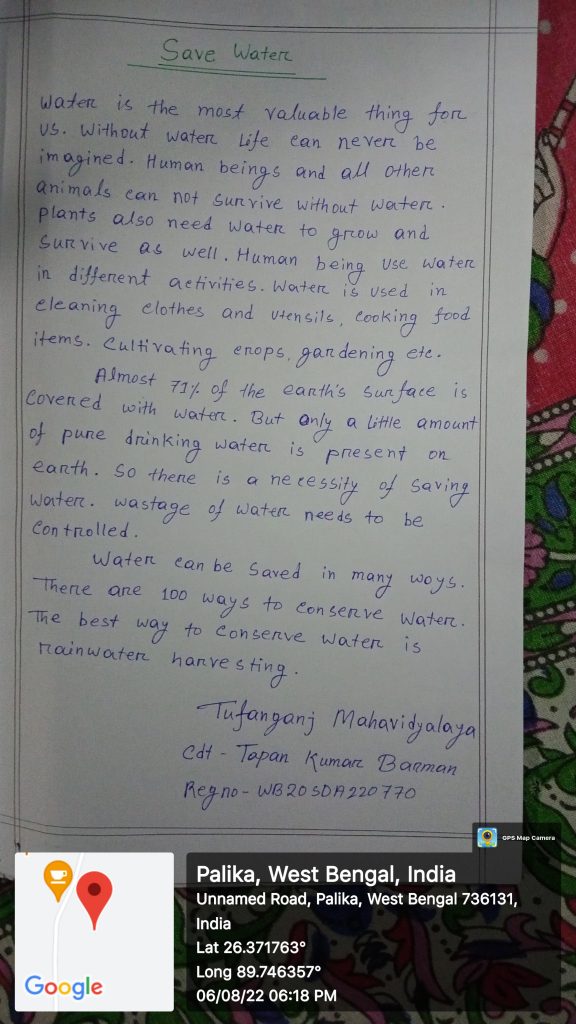 Save Water
Water is the most valuable thing for
us. Without water Life can never be
imagined. Human beings and all other
animals can not survive without water.
plants also need water to grow and
survive as well. Human being use water
in different activities. Water is used in
cleaning clothes and utensils, cooking food
items. Cultivating crops, gardening etc.
Almost 71% of the earth's surface is
covered with water. But only a little amount
of pure drinking water is present on
earth. So there is a necessity of saving
water. wastage of water needs to be
controlled.
Water can be saved in many ways.
There are 100 ways to conserve water.
The best way to conserve water is
rainwater harvesting.
Tufanganj Mahavidyalaya
Cdt - Tapan Kumar Barman
Regno- WB20SDA220770
GPS Map Camera
Palika, West Bengal, India
Unnamed Road, Palika, West Bengal 736131,
India
Lat 26.371763°
Long 89.746357°
06/08/22 06:18 PM
Google